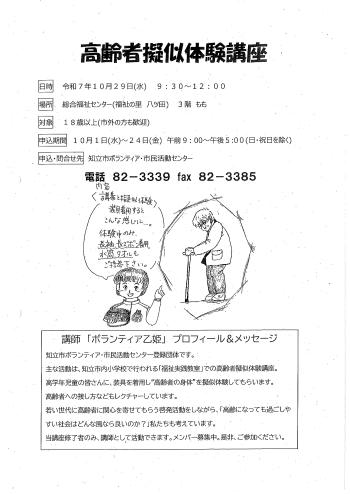 高齢者擬似体験講座
日時 令和７年１０月２９日(水) ９：３０～１２：００
場所 総合福祉センター(福祉の里 八ツ田) ３階 もも
対象 １８歳以上(市外の方も歓迎)
申込期間 １０月１日(水)～２４日(金) 午前９：００～午後５：００(日・祝日を除く)
申込・問合せ先 知立市ボランティア・市民活動センター
電話 82－3339 fax 82－3385
内容
(講義と擬似体験)
着用すると
こんな感じに…。
体験中のみ
長袖、長ズボン着用
水筒 タオルも
ご持参下さい。
講師 「ボランティア乙姫」 プロフィール＆メッセージ
知立市ボランティア・市民活動センター登録団体です。
主な活動は、知立市内小学校で行われる「福祉実践教室」での高齢者擬似体験講座。
高学年児童の皆さんに、装具を着用し"高齢者の身体"を擬似体験してもらいます。
高齢者への接し方などもレクチャーしています。
若い世代に高齢者に関心を寄せてもらう啓発活動をしながら、「高齢になっても過ごしや
すい社会はどんな風なら良いのか？」私たちも考えています。
当講座修了者のみ、講師として活動できます。メンバー募集中。是非、ご参加ください。